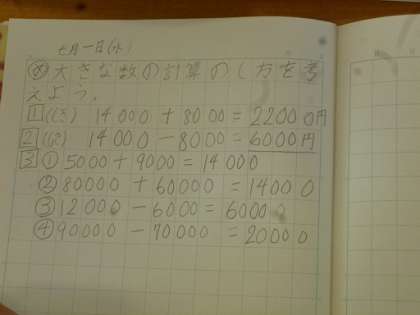 七月一日(火)
め 大きな数の計算のし方を考
えよう。
1 (しき) 14000 + 8000 = 22000円
2 (しき) 14000 - 8000 = 6000円
3 ① 5000 + 9000 = 14000
② 80000 + 60000 = 140000
③ 12000 - 6000 = 6000
④ 90000 - 70000 = 20000